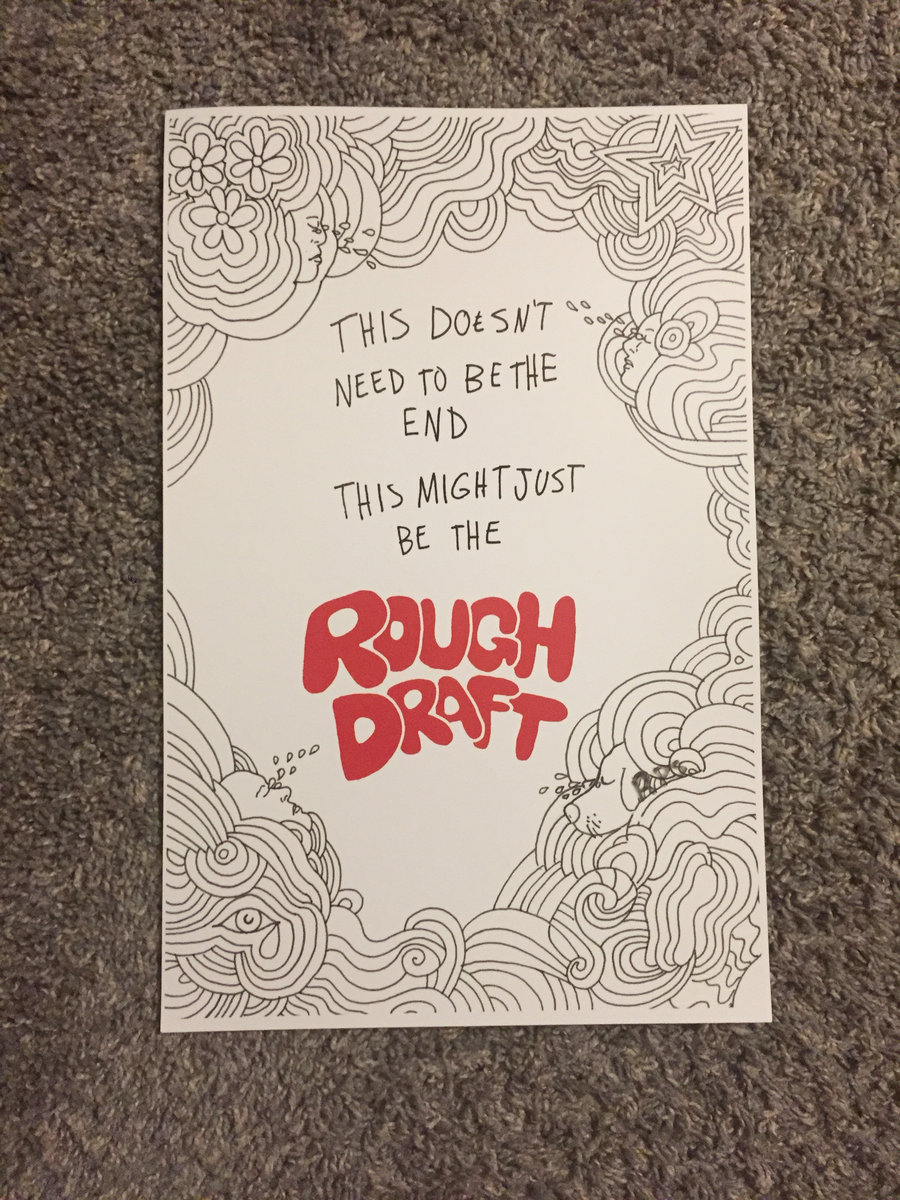 THIS DOESN'T
NEED TO BE THE
END
THIS MIGHT JUST
BE THE
ROUGH
DRAFT